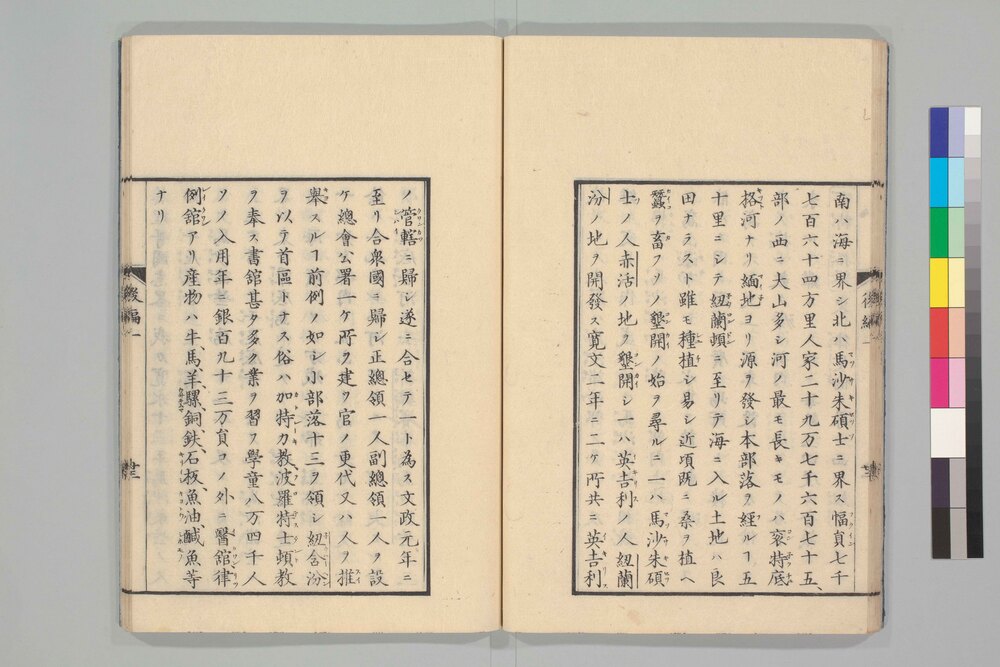 南ハ海ニ界シ北ハ馬沙朱碩士ニ界ス幅員七千
七百六十四方里人家二十九万七千六百七十五、
部ノ西ニ大山多シ河ノ最モ長キモノハ袞特底
挌河ナリ緬地ヨリ源ヲ發シ本部落ヲ經ルヿ五
十里ニシテ紐蘭頓ニ至リテ海ニ入ル土地ハ良
田ナラスト雖モ種植シ易シ近頃既ニ桑ヲ植ヘ
蠶ヲ畜フソノ墾開ノ始ヲ尋ルニ一ハ馬沙朱碩
士ノ人赤活ノ地ヲ墾開シ一ハ英吉利ノ人紐蘭
汾ノ地ヲ開發ス寛文二年ニ二ケ所共ニ英吉利
ノ管轄ニ歸シ遂ニ合セテ一ト為ス文政元年ニ
至リ合衆國ニ歸シ正總領一人副總領一人ヲ設
ケ總會公署一ケ所ヲ建ツ官ノ更代又ハ人ヲ推
舉スルヿ前例ノ如シ小部落十三ヲ領シ紐含汾
ヲ以テ首區トナス俗ハ加特力教波羅特士頓教
ヲ奉ス書舘甚タ多ク業ヲ習フ學童八万四千人
ソノ入用年ニ銀百九十三万負コノ外ニ醫舘律
例舘アリ産物ハ牛、馬、羊、騾、銅、鉄、石板、魚油、鹹魚等
ナリ
後編一